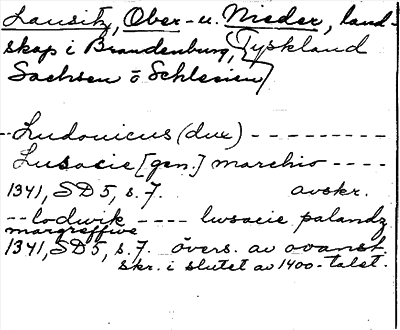 Lausitz, Ober- u. Nieder, land-
skap i Brandenburg, Tyskland
Sachsen o Schlesien)
-- Ludouicus (dux) - - - - - - - - -
Lusacie [gen.] marchio - - - -
1341, SD 5, s. 7. avskr.
-- lodwik - - - - lwsacie palandz
margreffwe
1341, SD 5, s. 7. övers. av ovanst.
skr. i slutet av 1400-talet.